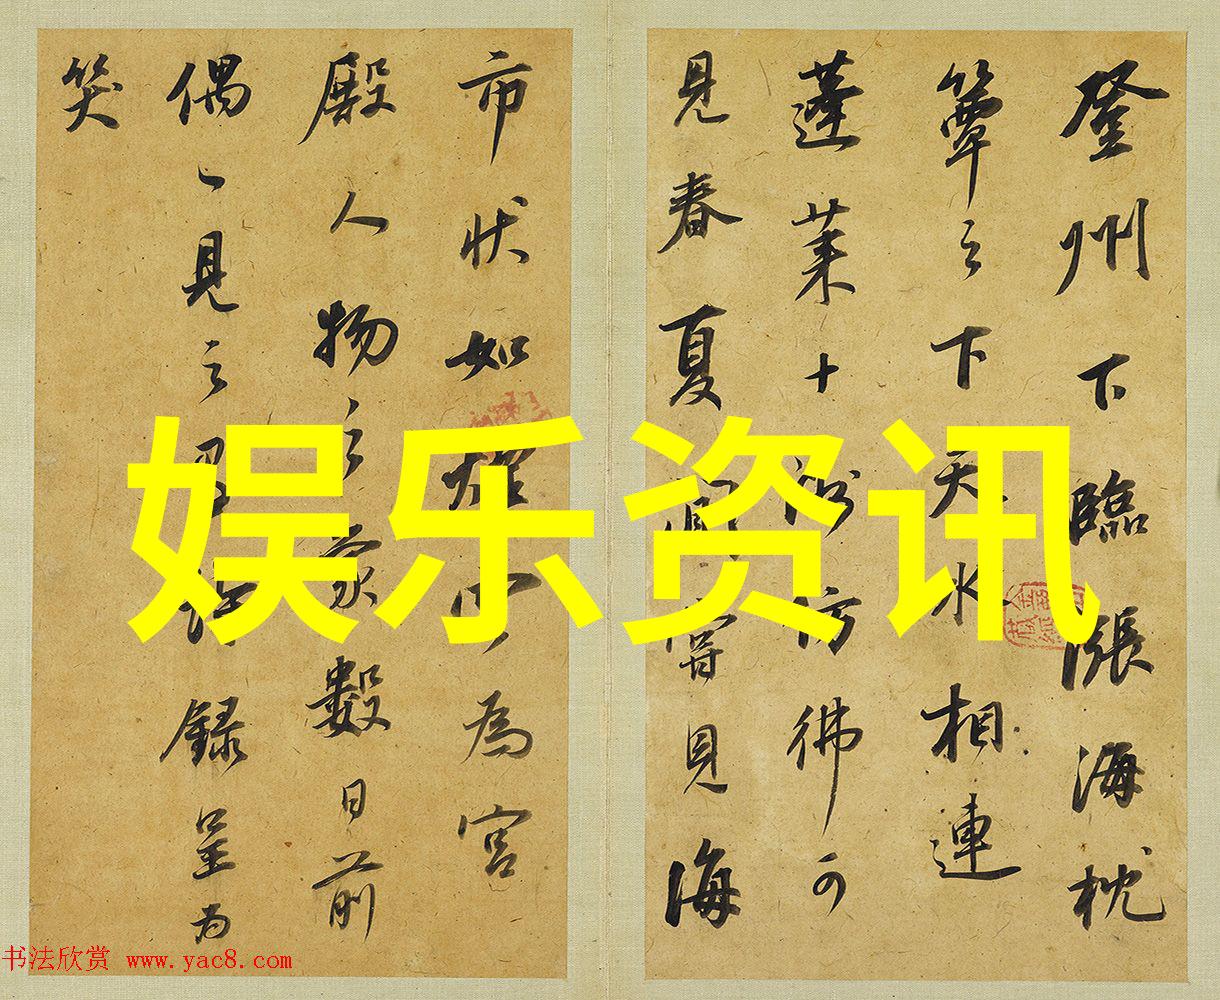 登州下臨漲海枕
簟之下天水相連
蓬莱十仿彿可
見春夏間見海
市状如為宮
殿人物之象數日前
偶一見之録呈為
笑
娱乐资讯
书法欣赏 www.yac8.com